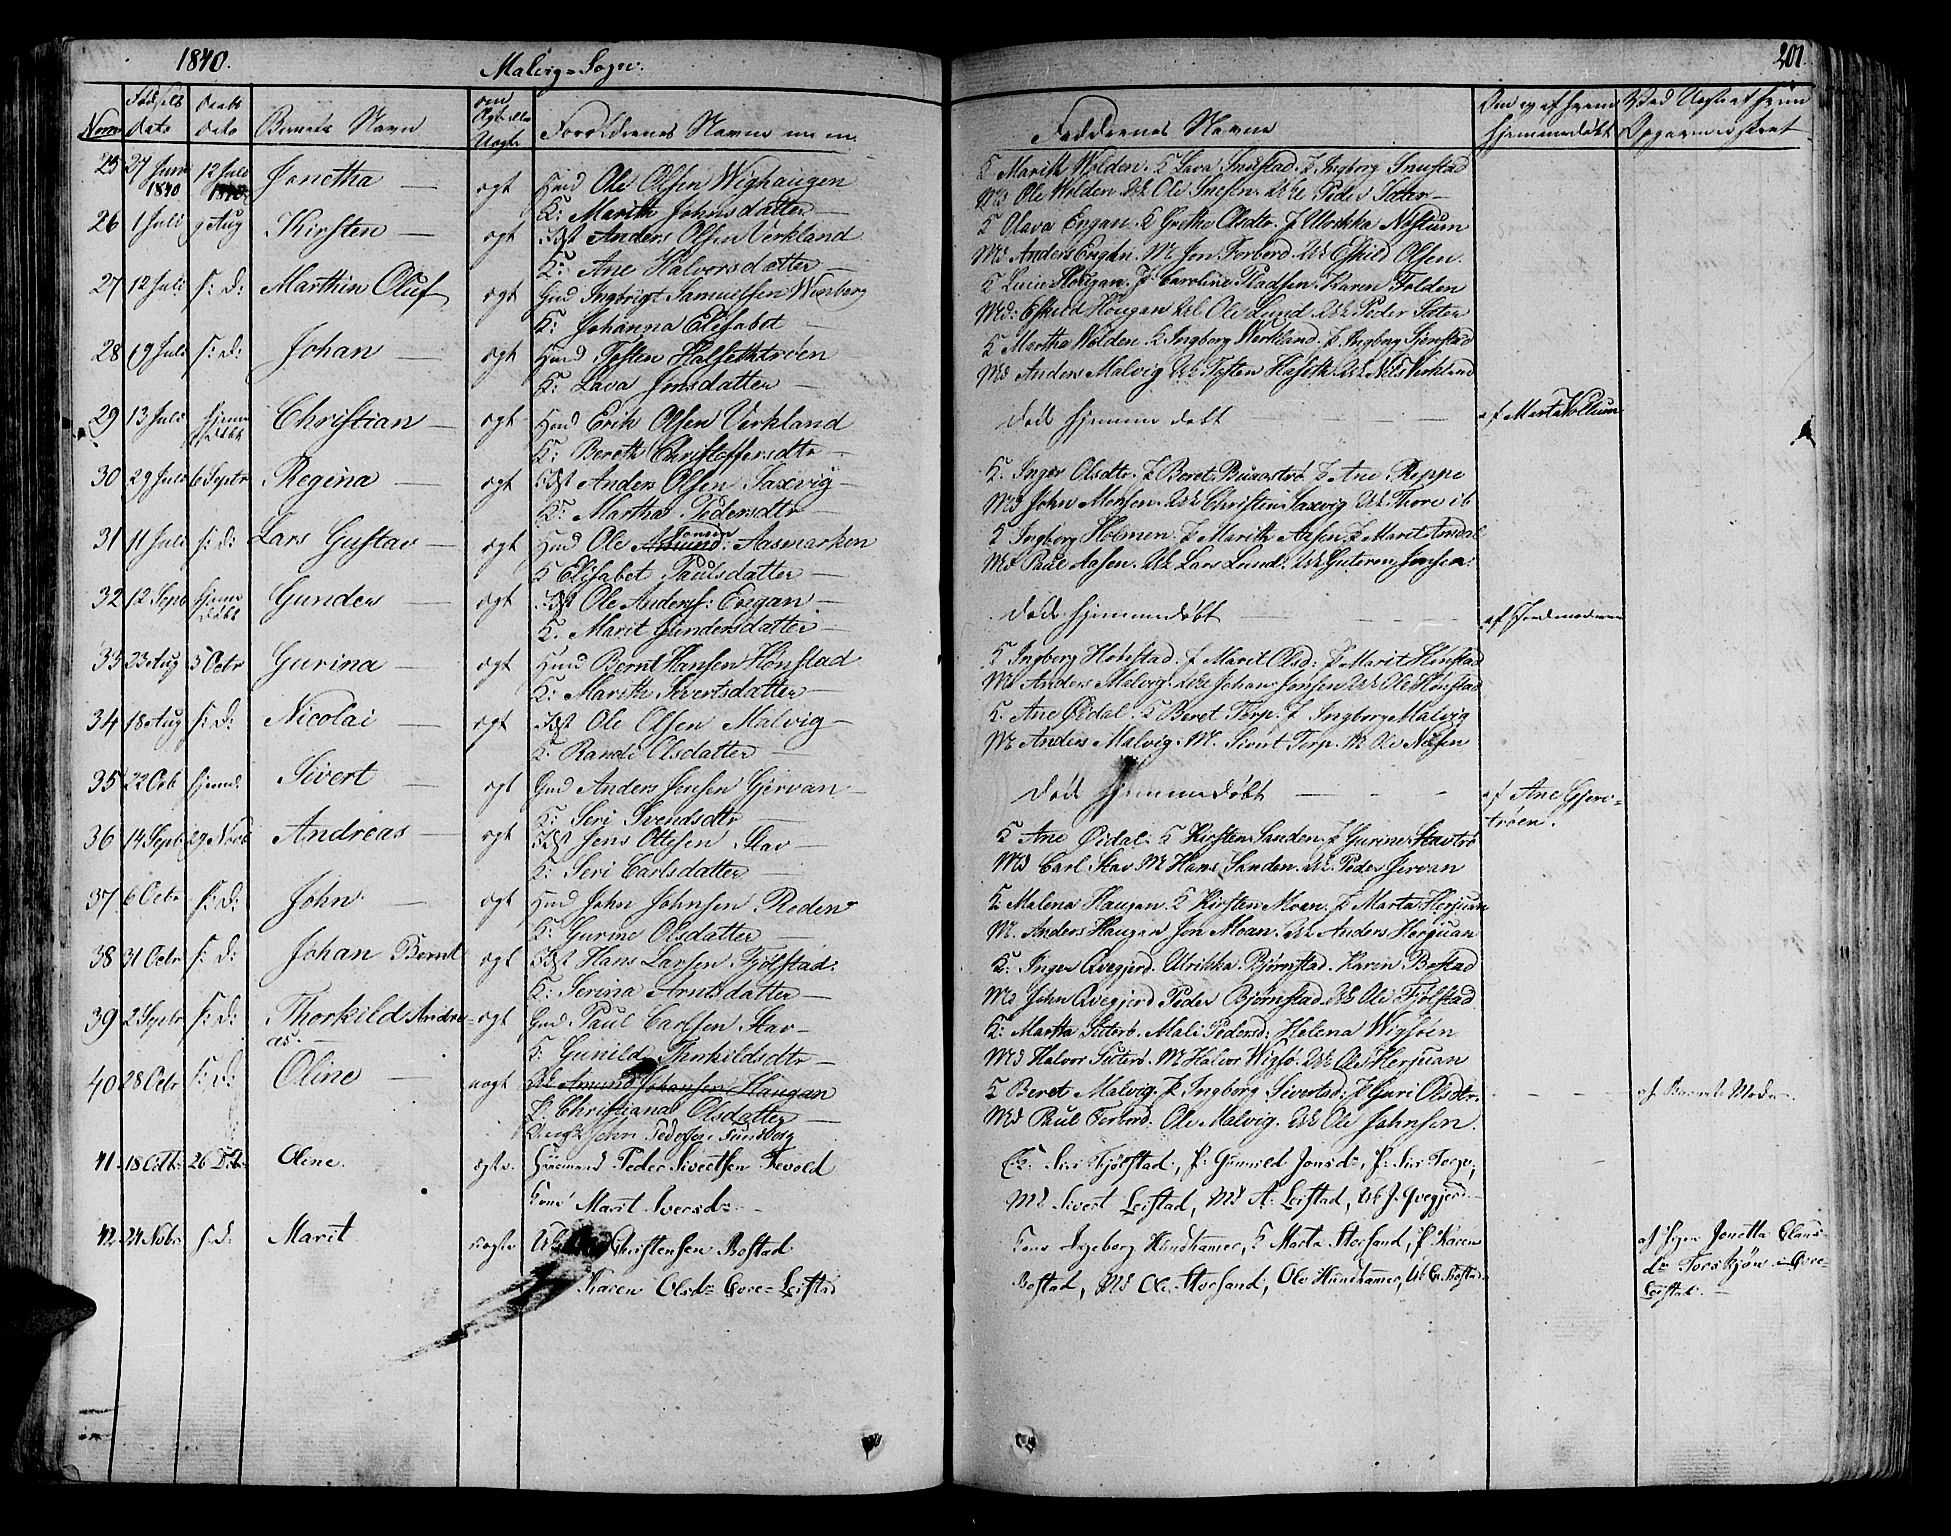 1840.
Malvig=Sogn.
201.
Nomr
Fødsels dato
Daabs dato
Barnets Navn
om Ægte eller Uægte
Forældrenes Navne m. m.
Faddernes Navne
Om og af hvem hjemmedøbt
Ved Uægte af hvem Opgaven er skeet
25 27 Juni 1840 12 Juli Jonetha — ægt Hmd Ole Olsen Wighaugen
K: Marith Johnsdatter —
K Marith Wolden. K Lava Snustad. P Ingborg Snustad
Md Ole Wolden Uk Ole Uk Peder Sæter —
26 1 Juli 9 Aug Kirsten — ægt Idst Anders Olsen Verkland
K: Ane Halvorsdatter —
K Olava Engan. K Grethe Olsdtr. P Ulrikka
Md Anders Engan. M Jon Forbord. Uk Eskild Olsen.
27 12 Juli s: d: Marthin Oluf ægt Gmd Ingbrigt Samuelsen
K: Johanna Elisabet —
K Hougan. P Caroline Pladsen. Karen Folden
Md: Eskild Hougan Uk Ole Lund. Uk Peder Sæter
28 19 Juli s: d: Johan — ægt Hmd Tosten Halsethtrøen
K: Lava Jonsdatter —
K Martha Wolden. K Ingborg Werkland. P Ingborg
Md Anders Malvig Uk Tosten Uk Nils Verkland
29 13 Juli hjemmedøbt Christian — ægt Hmd Erik Olsen Verkland
K: Bereth Christoffersdtr —
Død hjemmedøbt — — af Marta
30 29 Juli 6 Septr Regina — ægt Idst Anders Olsen Saxvig —
K: Martha Pedersdtr —
K. Inger Olsdtr. P Beret P Ane Reppe
Md John Monsen. Uk Christin Saxvig Uk Thore ib
31 11 Juli s: d: Lars Gustav — ægt Hmd Ole Jonsen Aasmarken
K Elisabet Paulsdatter —
K Ingborg Holmen. P Marith Aasen. P Marit
Md Paul Aasen. Uk Lars Lund. Uk Jonsen.
32 12 Septr hjemmedøbt Gunder — ægt Idst Ole Anders: Engan —
K. Marit Gundersdatter —
Død hjemmedøbt — — af Jordemoderen
33 23 Aug 5 Octr Gurina — ægt Hmd Bernt Hansen Hønstad
K: Marith Sivertsdatter —
K Ingborg Hønstad. P Marit Olsd: P Marit Hønstad
Md Anders Malvig. Uk Johan Jonsen Uk Ole Hønstad
34 18 Aug s: d: Nicolai — ægt Idst Ole Olsen Malvig —
K. Randi Olsdatter —
K. Ane Øidal. K Beret Torp. P Ingborg Malvig
M Anders Malvig. M. Sivert Torp. M Ole
35 22 Ocb hjemd. Sivert — ægt Gmd Anders Jensen Gjervan —
K: Seri Svendsdtr —
Død hjemmedøbt — — af Ane
trøen.
36 14 Septr 29 Novb Andreas — ægt Idst Jens Olesen Stav —
K: Seri Carlsdatter —
K Ane Øidal. K Kirsten Sanden. P Gurine Stavtrø
Md Carl Stav M Hans Sanden. Uk. Peder Jervan
37 6 Octr s: d: John — ægt Hmd John Johnsen Roden
K: Gurine Olsdatter —
K Malena Haugan. K Kirsten Moen. P Marta Herjuan
M. Anders Haugan Jon Moan. Uk Anders Herjuan
38 31 Octr s: d: Johan Bernt ægt Idst Hans Larsen Fjølstad.
K: Serina Arntsdatter —
K: Inger Qvegjerd. Ulrikka Bjørnstad. Karin Bostad
Md John Qvegjerd Peder Bjørnstad. Uk Ole Fjølstad
39 2 Septr s: d: Thorkild Andreas. — ægt Gmd Paul Carlsen Stav —
K: Gunild Thorkildsdtr —
K: Martha Mali Pedersd: Helena Wigsøen
Md Halvor M Halvor Wigsø. Uk Ole Herjuan
40 28 Octr s: d: Oline — uægt Uk Amund Johansen Haugan
P: Christiana Olsdatter —
John Pedersen Sundborg
K Beret Malvig. P Ingborg Sivertsd: P Guri Olsdtr.
Md Paul Forbord. Ole Malvig. Uk Ole Johnsen.
af Barnets Moder —
41. 18 Octb: 26 Db: Oline. ægte. Huusmand Peder Sivertsen Fævold
Kone Marit Iversdr
K: Siri Fjølstad, P: Gunnild Jonsdr, P: Siri Torp,
Md Sivert Leistad, Md A: Leistad, Uk J. Qvegjerd.
42. 24 Nobr: s: d: Marit uægte Christensen Bostad
Karen Olsdr Øvre=Leistad
Kone Ingeborg Hundhamer, K Marta Storsand, P. Karen
Bostad, Md Ole Storsand, Ole Hundhamer, Uk
af Pigen Jonetta Clausdr Torskjøn i Øvre=Leistad. —